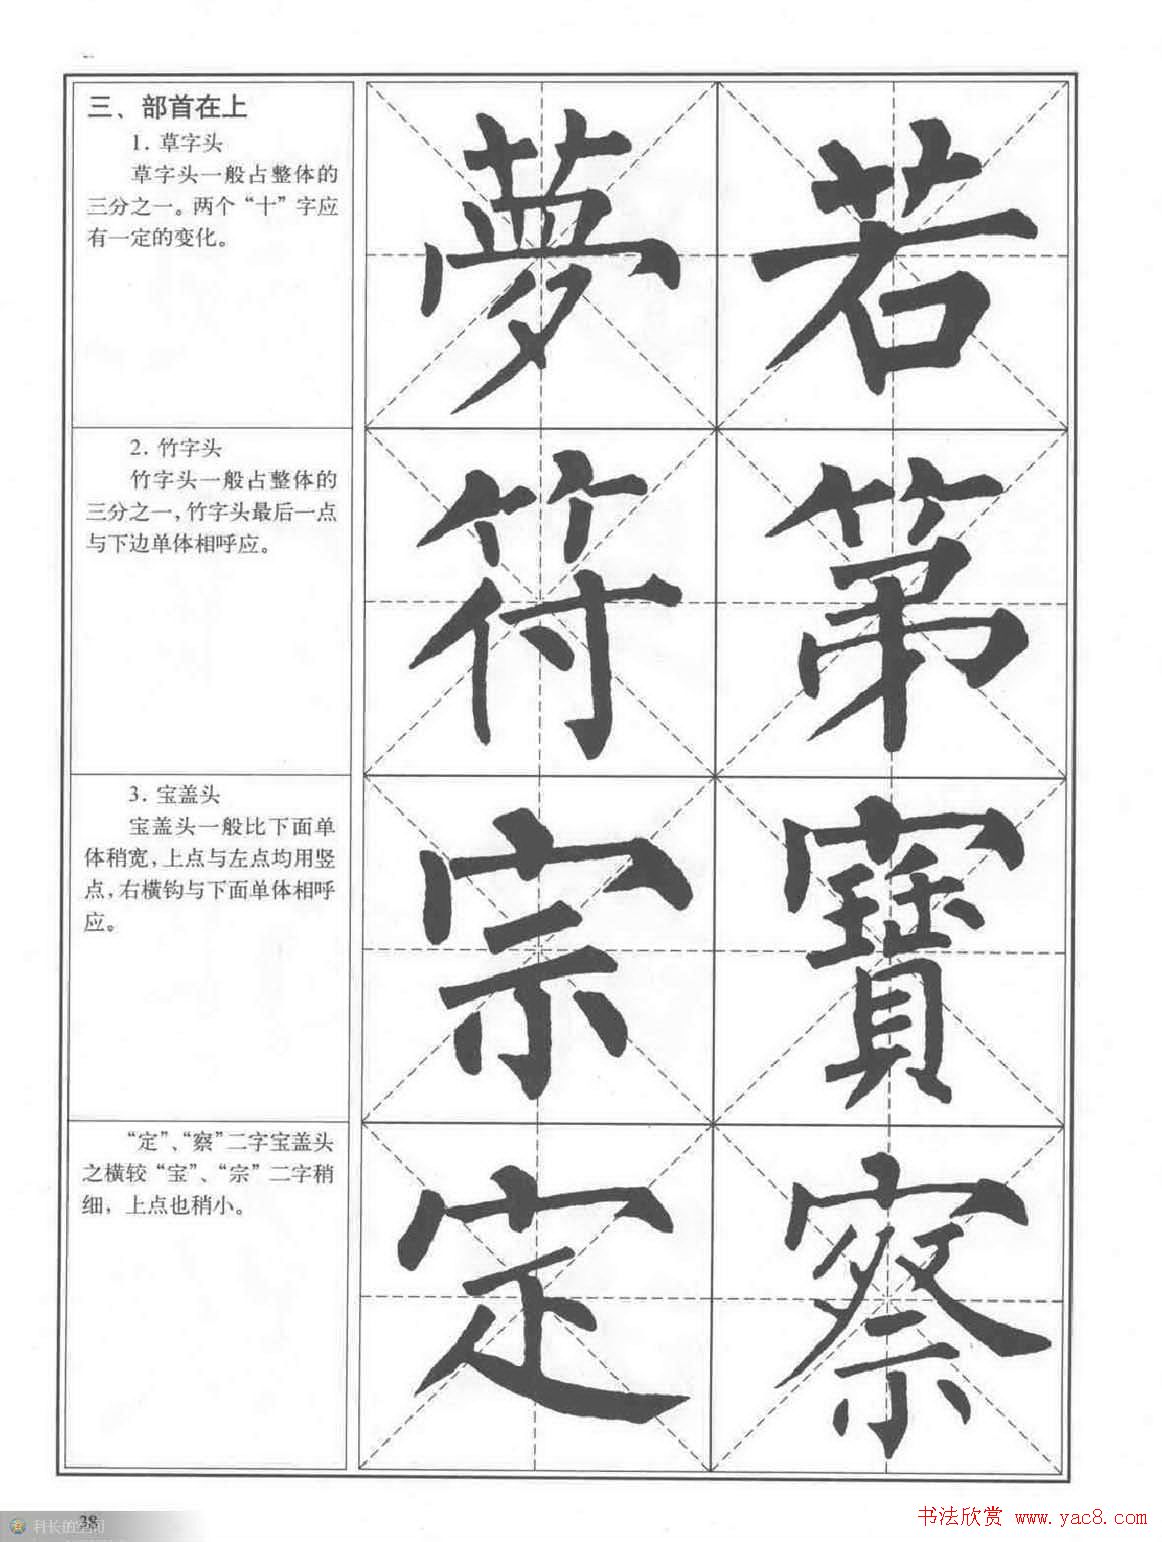 三、部首在上
1. 草字头
草字头一般占整体的
三分之一。两个“十”字应
有一定的变化。
夢 若
2. 竹字头
竹字头一般占整体的
三分之一，竹字头最后一点
与下边单体相呼应。
符 第
3. 宝盖头
宝盖头一般比下面单
体稍宽，上点与左点均用竖
点，右横钩与下面单体相呼
应。
宗 寶
“定”、“察”二字宝盖头
之横较“宝”、“宗”二字稍
细，上点也稍小。
定 察
38
科长的空间
书法欣赏 www.yac8.com